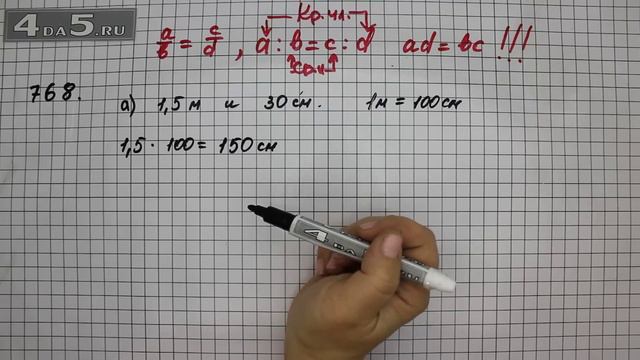 4DA5.RU
Кр.чл.
a/b = c/d , a : b = c : d ad = bc !!!
ср.ч.
768.
а) 1,5 м и 30 см. 1 м = 100 см
1,5 · 100 = 150 см
4